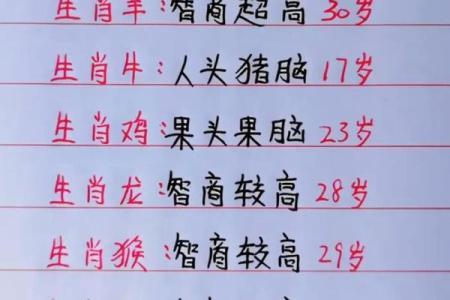 生肖羊:智商超高 30岁
生肖牛:人头猪脑 17岁
生肖鸡:果头果脑 23岁
生肖龙:智商较高 28岁
生肖猴:智商较高 29岁